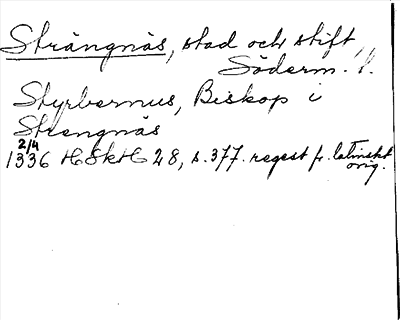 Strängnäs, stad och stift,
Söderm. l.
Styrbernus, Biskop i
Strengnäs
2/4
1336 HSkH 28, s. 377. regest fr. latinskt
orig.